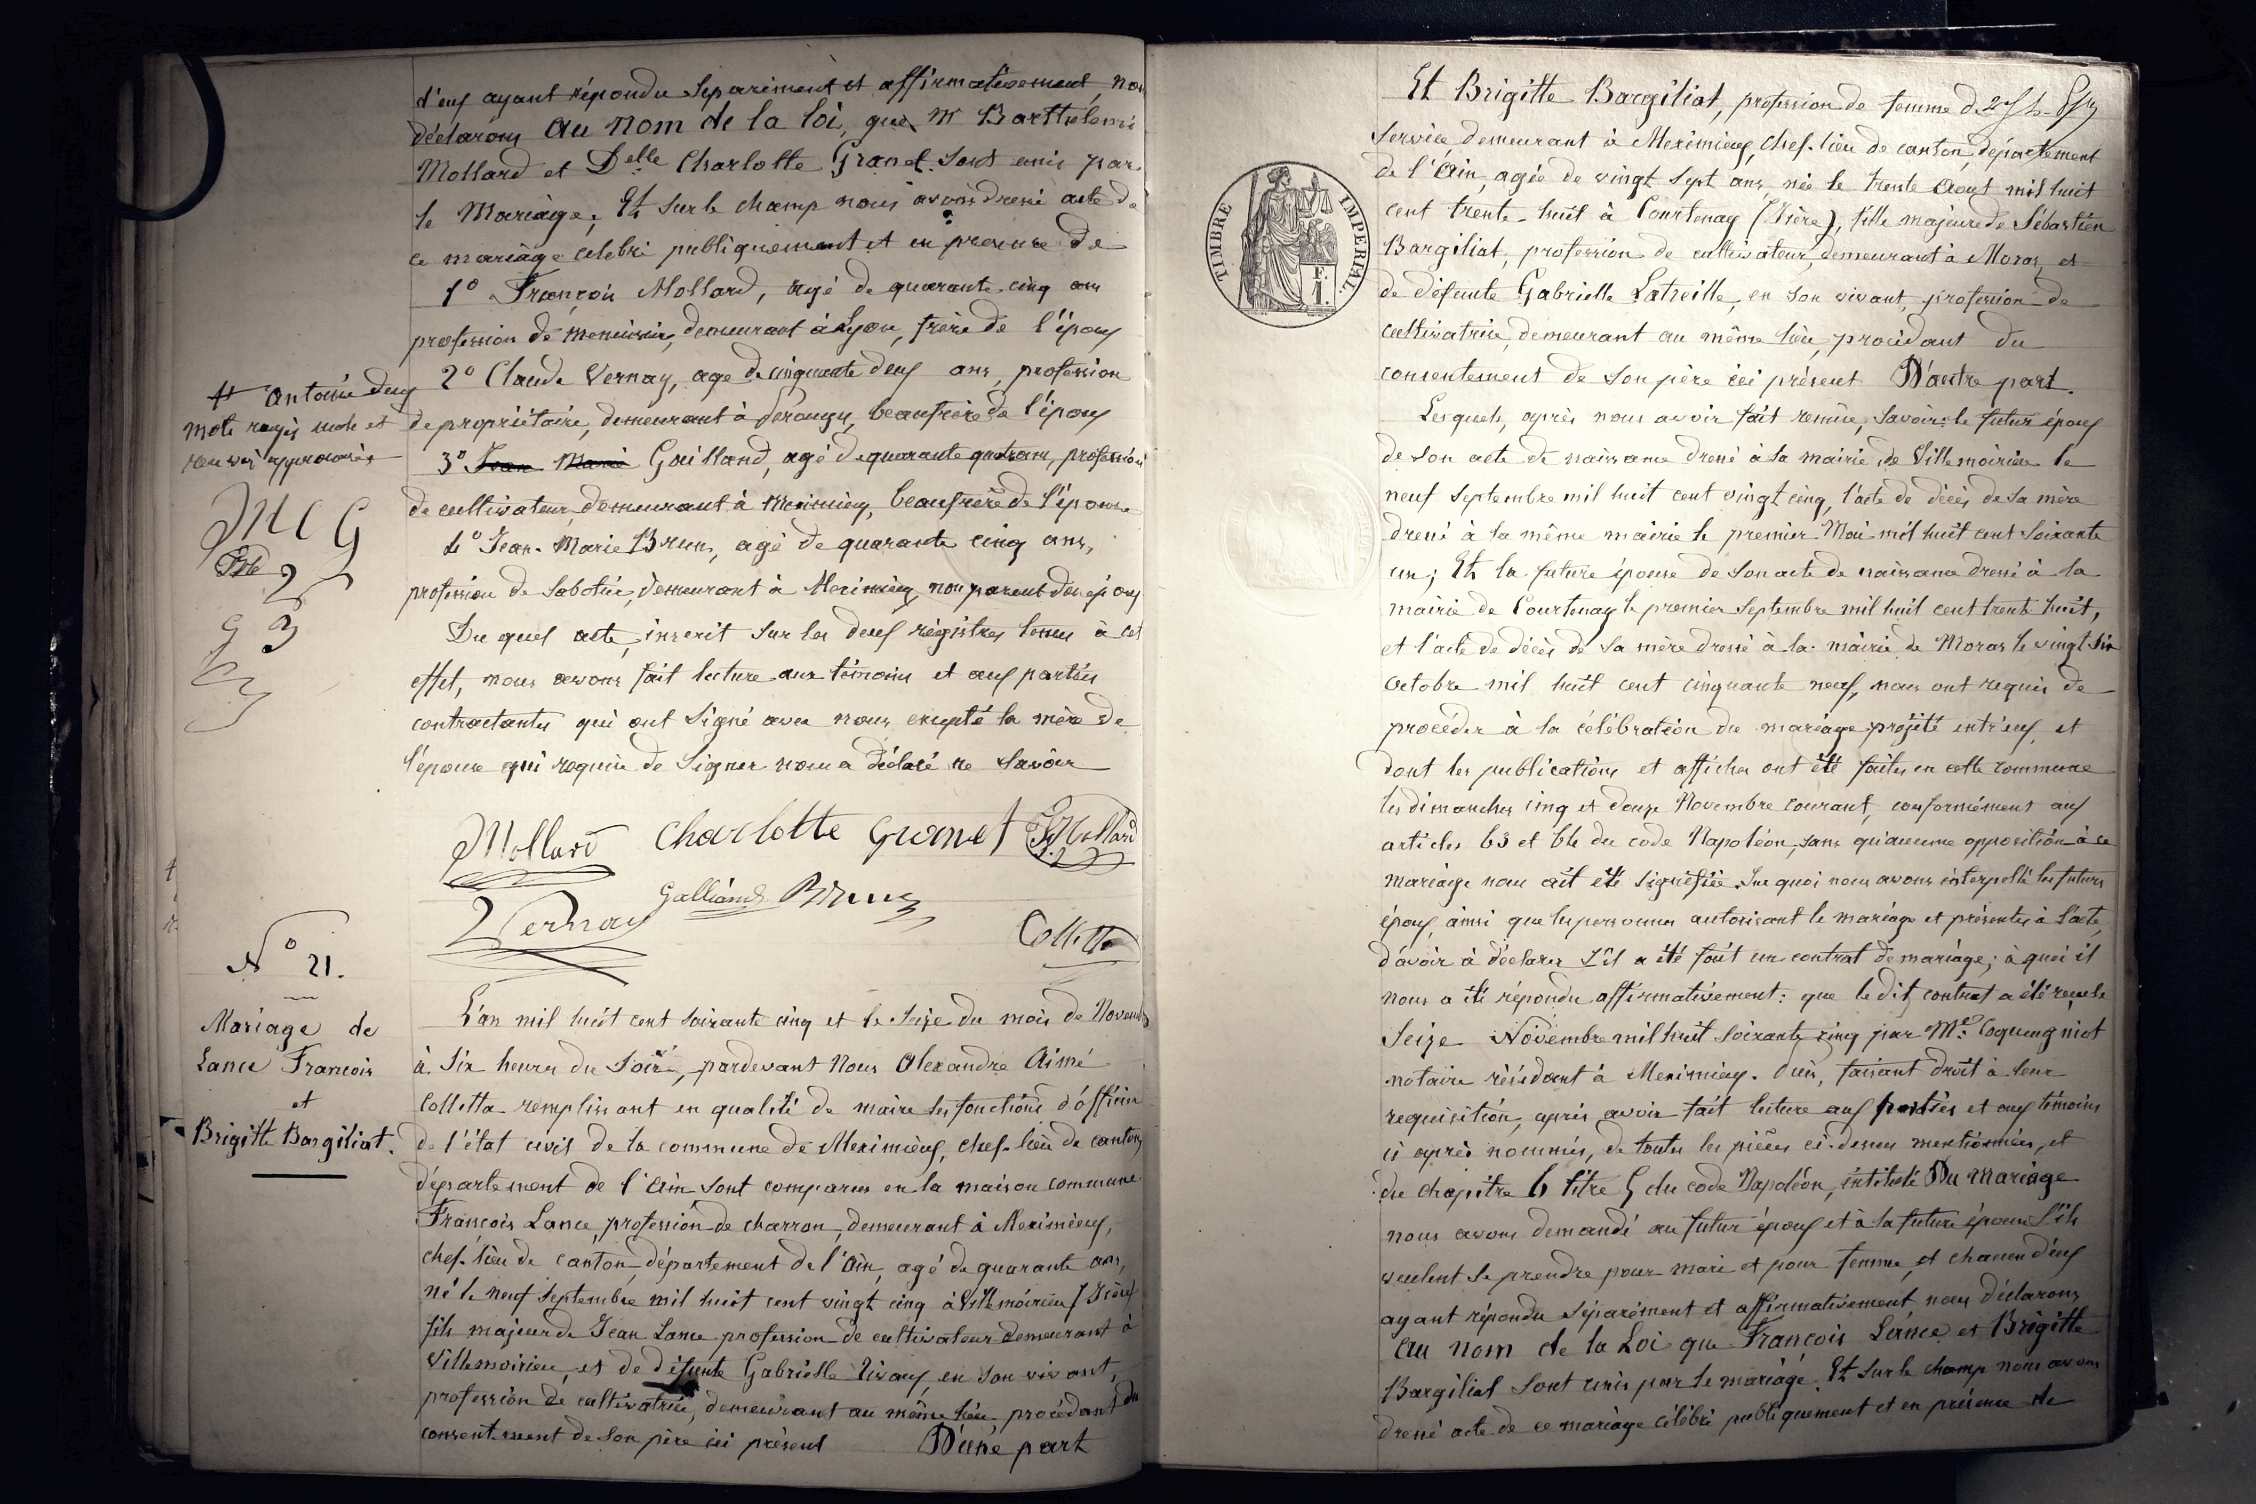 d'eux ayant répondu séparément et affirmativement, nous
déclarons au nom de la loi, que Mr Barthélemi
Mollard et Delle Charlotte Granet sont unis par
le Mariage. Et sur le champ nous avons dressé acte de
ce mariage célébré publiquement et en présence de
1º François Mollard, agé de quarante cinq ans
profession de menuisier, demeurant à Lyon, frère de l'époux
2º Claude Vernay, agé de cinquante deux ans, profession
de propriétaire, demeurant à, beaufrère de l'époux
3º Jean Marie Gailland, agé de quarante quatre ans, profession
de cultivateur, demeurant à Meximieux, beaufrère de l'épouse
4º Jean-Marie Brun, agé de quarante cinq ans,
profession de Sabotier, demeurant à Meximieux, non parent des époux
Du quel acte, inscrit sur les deux régistres tenus à cet
effet, nous avons fait lecture aux témoins et aux parties
contractantes qui ont signé avec nous, excepté la mère de
l'épouse qui requise de signer nous a déclaré ne savoir
# Antoine deux
mots rayés nuls et
renvoi approuvés
M C G
Mollard Charlotte Granet F. Mollard
Galliand Brun
Vernay Colletta
Nº 21.
Mariage de
Lance François
et
Brigitte Bargiliat.
L'an mil huit cent soixante cinq et le seize du mois de Novembre
à six heures du soir, pardevant Nous Alexandre Aimé
Colletta remplissant en qualité de maire les fonctions d'officier
de l'état civil de la commune de Meximieux, chef-lieu de canton
département de l'Ain sont comparus en la maison commune
François Lance, profession de charron, demeurant à Meximieux,
chef-lieu de canton, département de l'Ain, agé de quarante ans,
né le neuf Septembre mil huit cent vingt cinq à Villemoirieu (Isère)
fils majeur de Jean Lance profession de cultivateur demeurant à
Villemoirieu, et de défunte Gabrielle, en son vivant,
profession de cultivatrice, demeurant au même lieu procédant du
consentement de son père ici présent D'une part
Et Brigitte Bargiliat, profession de femme de
service, demeurant à Meximieux, chef-lieu de canton, département
de l'Ain, agée de vingt sept ans, née le trente Aout mil huit
cent trente-huit à Courtenay (Isère), fille majeure de Sébastien
Bargiliat, profession de cultivateur, demeurant à Moras, et
de défunte Gabrielle Latreille, en son vivant, profession de
cultivatrice, demeurant au même lieu, procédant du
consentement de son père ici présent D'autre part.
Lesquels, après nous avoir fait remise, savoir: le futur époux
de son acte de naissance dressé à la mairie de Villemoirieu le
neuf Septembre mil huit cent vingt cinq, l'acte de décès de sa mère
dressé à la même mairie le premier Mai mil huit cent soixante
un; Et la future épouse de son acte de naissance dressé à la
mairie de Courtenay le premier Septembre mil huit cent trente huit,
et l'acte de décès de sa mère dressé à la mairie de Moras le vingt six
octobre mil huit cent cinquante neuf, nous ont requis de
procéder à la célébration du mariage projeté entr'eux et
dont les publications et affiches ont été faites en cette commune
les dimanches cinq et douze Novembre courant, conformément aux
articles 63 et 64 du code Napoléon, sans qu'aucune opposition à ce
mariage nous ait été signifiée. Sur quoi nous avons interpellé les futurs
époux, ainsi que les personnes autorisant le mariage et présentes à l'acte,
d'avoir à déclarer s'il a été fait un contrat de mariage; à quoi il
nous a été répondu affirmativement: que le dit contrat a été reçu le
Seize Novembre mil huit soixante cinq par Me. Coquengniot
notaire résidant à Meximieux. Puis, faisant droit à leur
requisition, après avoir fait lecture aux parties et aux témoins
ci après nommés, de toutes les pièces ci-dessus mentionnées, et
du chapitre 6 titre 5 du code Napoléon, intitulé Du Mariage
nous avons demandé au futur époux et à la future épouse s'ils
veulent se prendre pour mari et pour femme, et chacun d'eux
ayant répondu séparément et affirmativement, nous déclarons
Au nom de la Loi que François Lance et Brigitte
Bargiliat sont unis par le mariage. Et sur le champ nous avons
dressé acte de ce mariage célébré publiquement et en présence de
TIMBRE IMPERIAL.